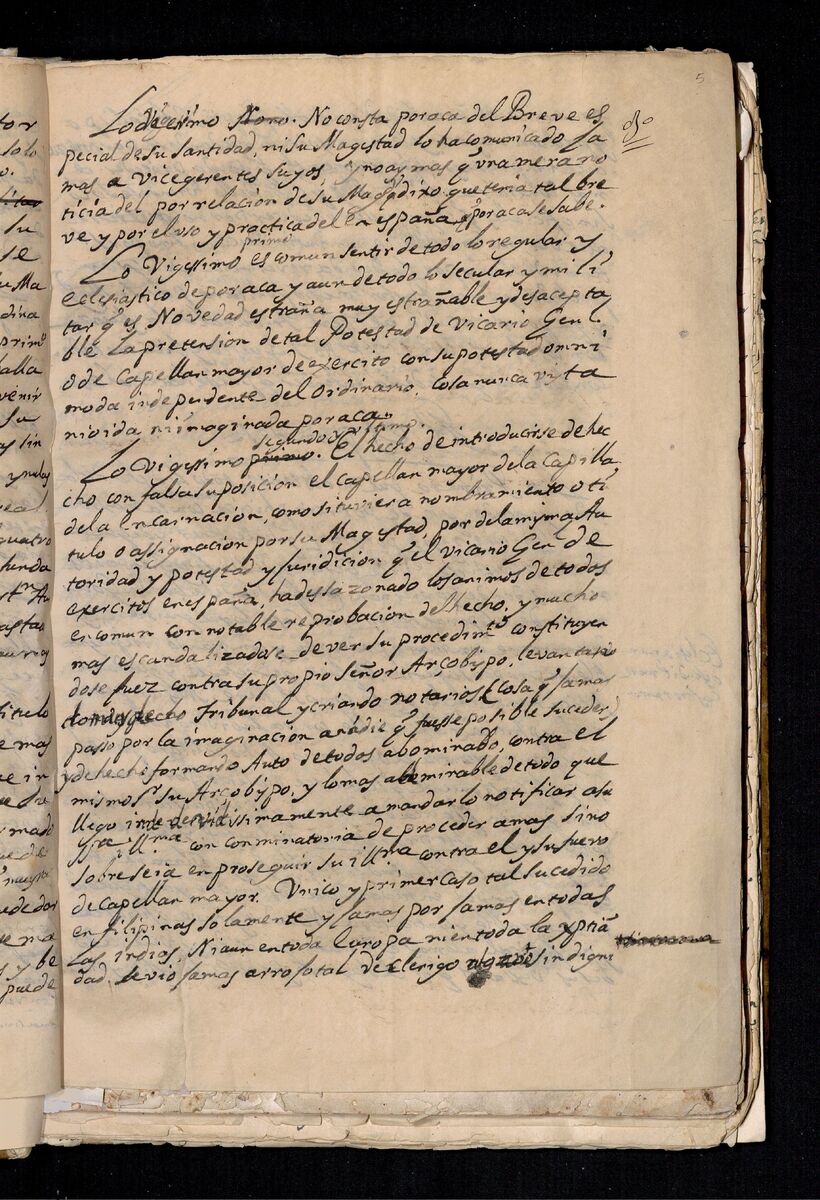 5
Lo vigesimo Nono. No consta por aca del Breve es
pecial de su Santidad, ni su Magestad lo ha comunicado ja
mas a Vicegerentes suyos, y no ay mas q̃ una mera no
ticia del por relacion de su Magd q̃ dixo que tenia tal bre
ve y por el uso y practica del en españa q̃ por aca se sabe.
primo
Lo Vigessimo es comun sentir de todo lo regular y
eclesiastico de por aca y aun de todo lo secular y mili
tar q̃ es Novedad estraña muy estrañable y desacepta
ble la pretension de tal Potestad de Vicario Genl.
o de Capellan mayor de exercito con su potestad omni
moda independente del Ordinario, cosa nunca vista
ni oida ni imaginada por aca
segundo y
Lo Vigessimo primo. El hecho de introducirse de hec
cho con falsa suposicion el capellan mayor de la Capilla
de la Encarnacion, como si tuviera nombramiento o ti
tulo o assignacion por su Magestad, por de la misma Au
toridad y potestad y juridicion q̃ el Vicario Genl de
exercitos en españa, ha desazonado los animos de todos
en comun con notable reprobacion del hecho, y mucho
mas escandalizadose de ver su procedimto constituyen
dose Juez contra su propio Señor Arçobispo, levantado
Tribunal y criando notarios (cosa q̃ jamas
passo por la imaginacion a nadie q̃ fuesse posible suceder)
y de hecho formando Auto de todos abominado, contra el
mismo Sr su Arçobispo, y lo mas abominable de todo que
llego indevidissimamente a mandarlo notificar a su
Sa illma con conminatoria de proceder a mas sino
sobreseia en proseguir su illma contra el y su fuero
de Capellan mayor. Unico y primer caso tal sucedido
en filipinas solamente y jamas por jamas en todas
las indias, Ni aun en toda Europa ni en toda la xptia
dad, se vio jamas arrojo tal de clerigo sin digni